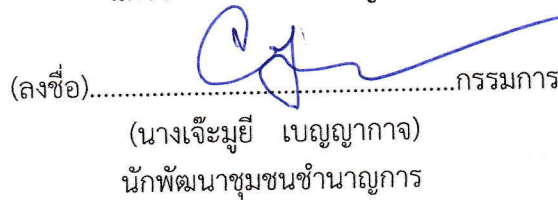 (ลงชื่อ)............................................................กรรมการ
(นางเจ๊ะมูยี เบญญากาจ)
นักพัฒนาชุมชนชำนาญการ